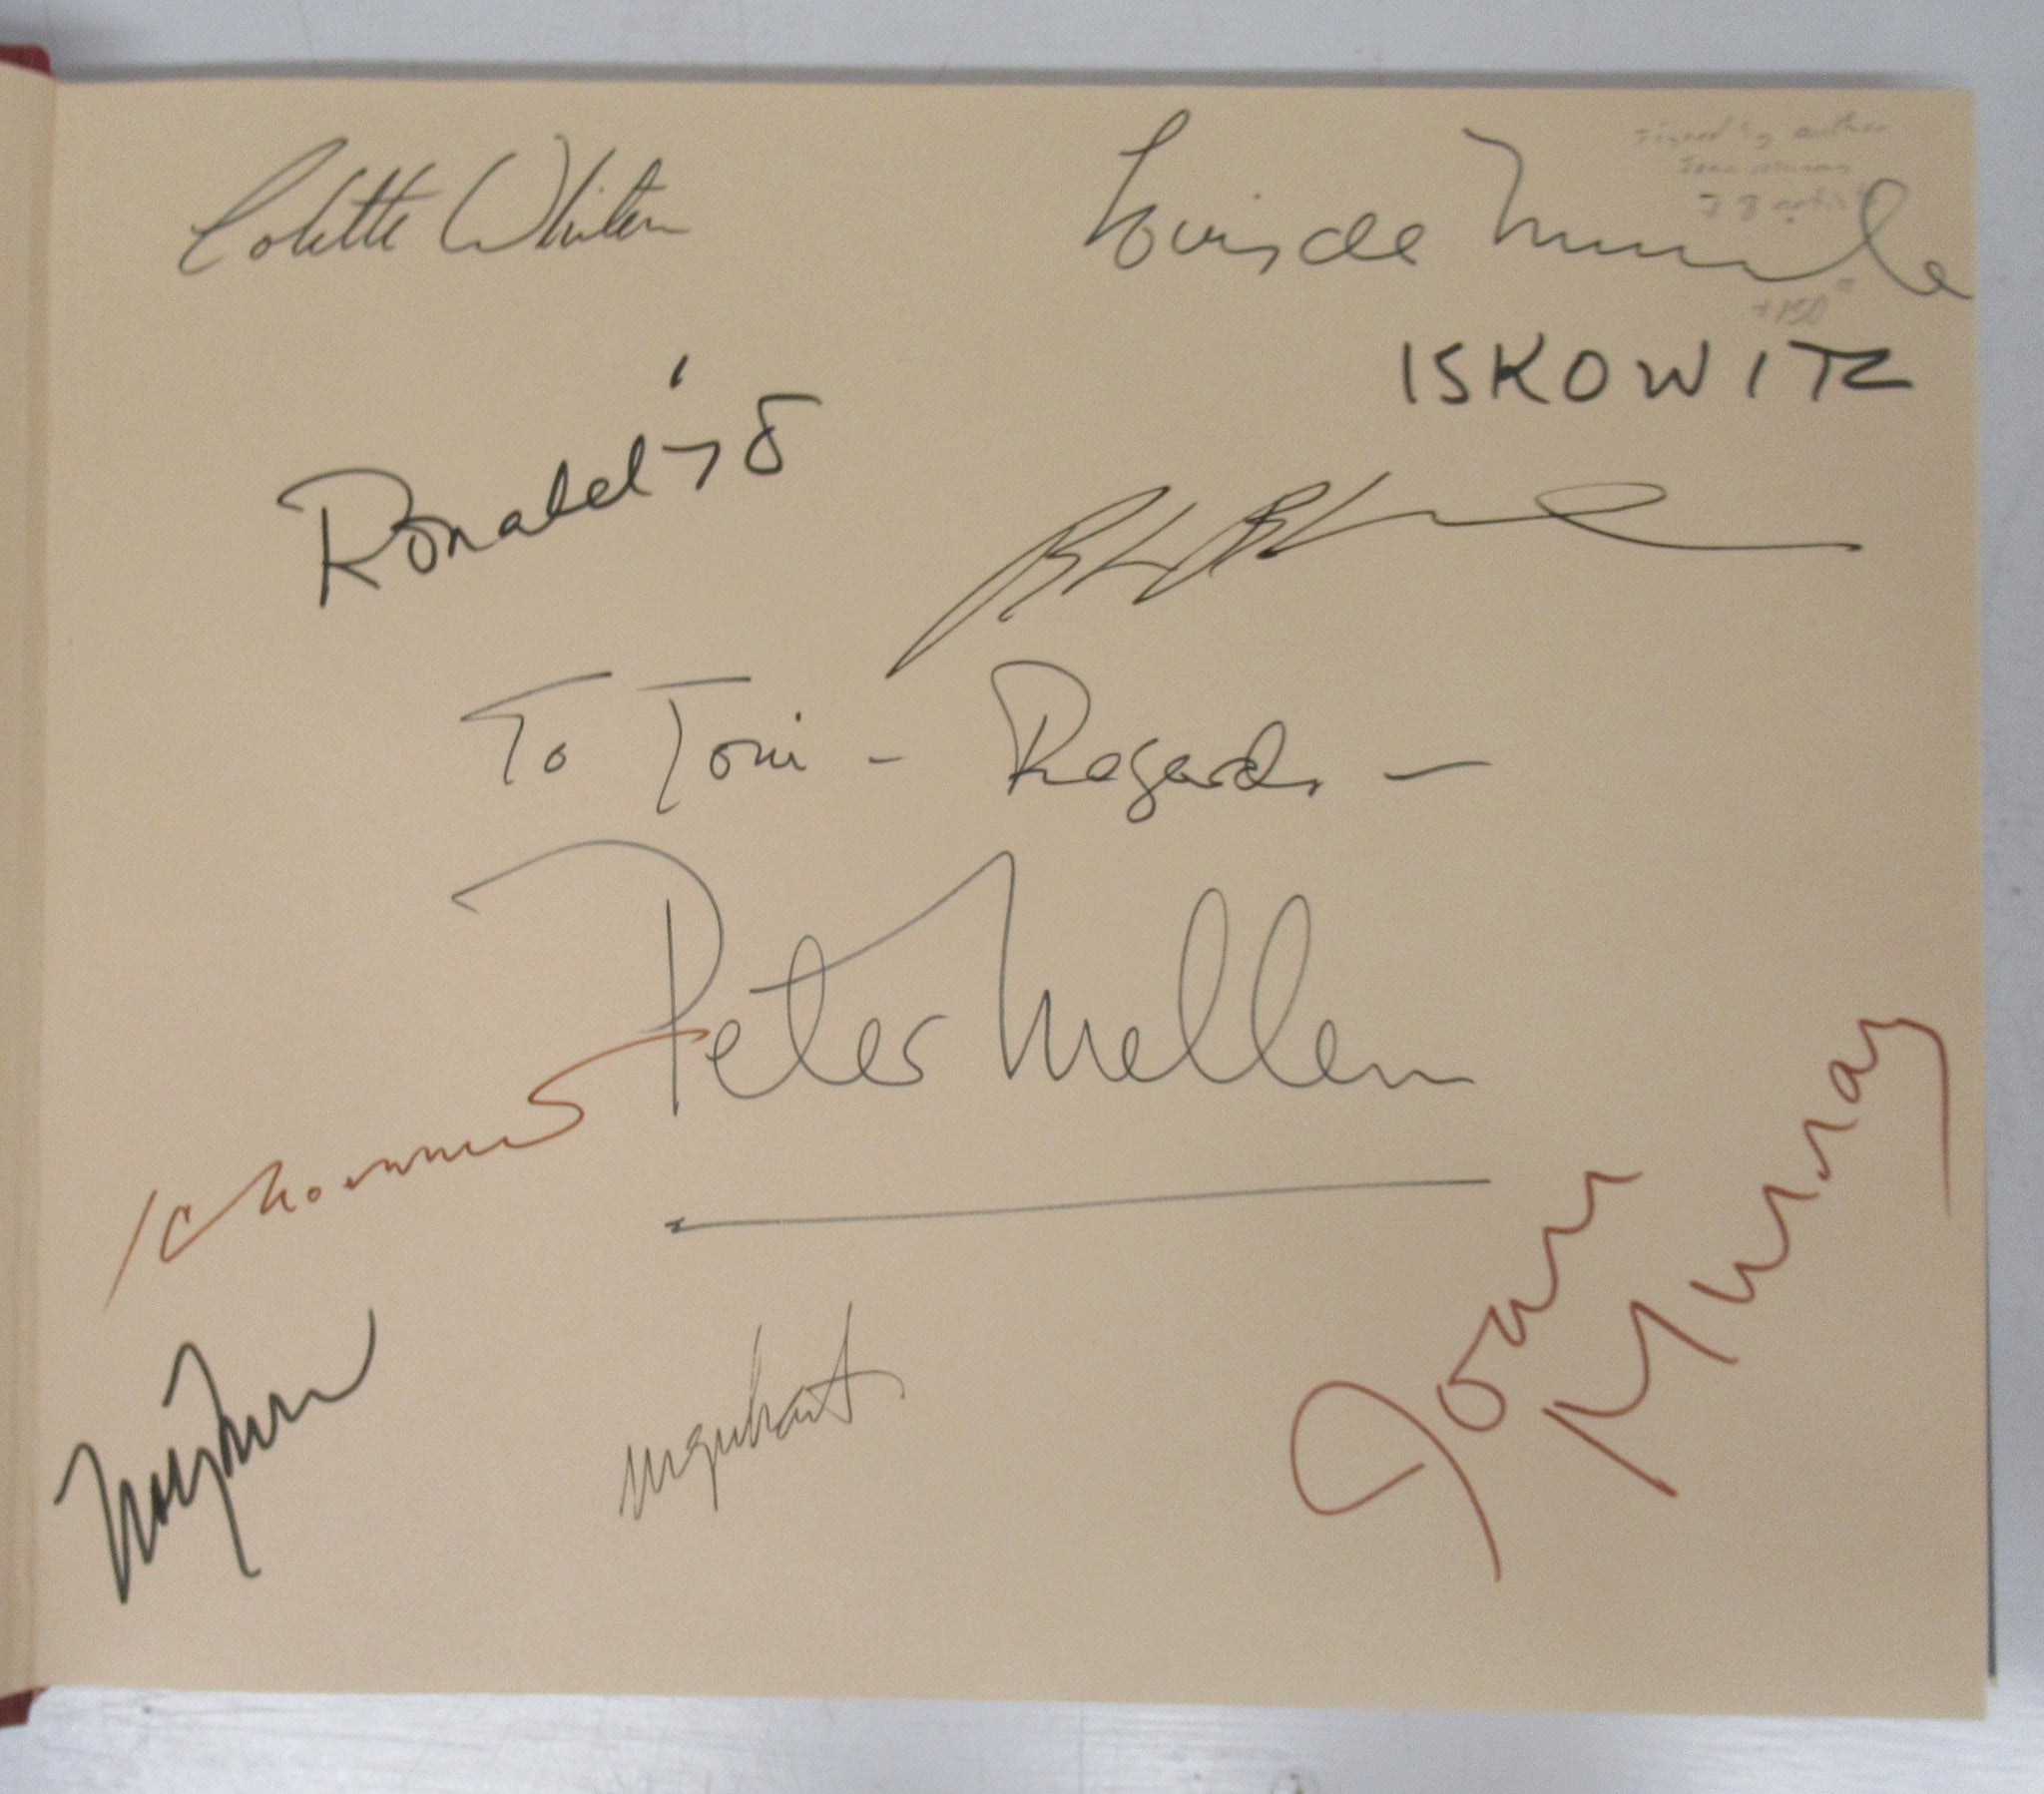 Colette Whiten
Louis de Niverville
signed by author
Joan Murray
ISKOWITZ
Ronald '78
To Toni - Regards -
Peter Mellen
urquhart
Joan Murray